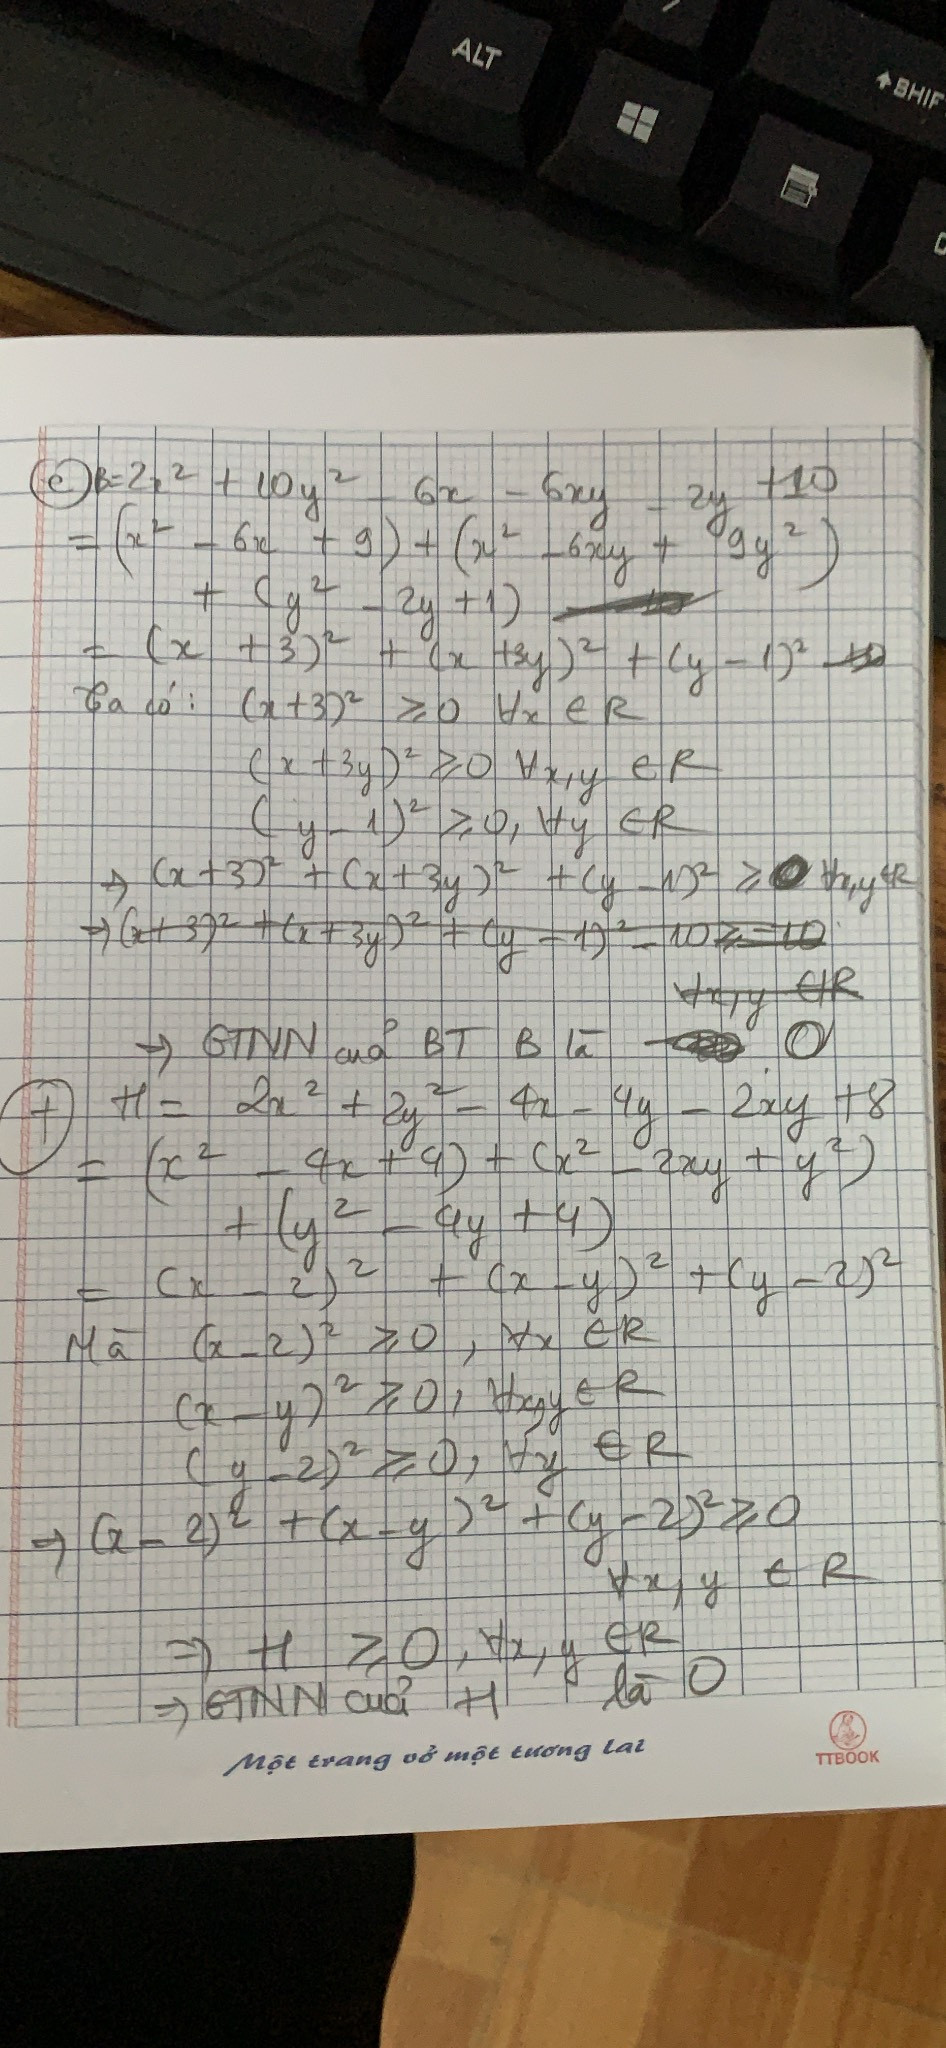 ALT
SHIF
e) B=2x² + 10y² - 6x - 6xy - 2y +10
= (x² - 6x + 9) + (x² - 6xy + 9y²)
+ (y² - 2y + 1)
= (x + 3)² + (x + 3y)² + (y - 1)² - 10
Ta có: (x+3)² ≥ 0 ∀x ∈ R
(x + 3y)² ≥ 0 ∀x,y ∈ R
(y - 1)² ≥ 0, ∀y ∈ R
→ (x+3)² + (x+3y)² + (y - 1)² ≥ 0 ∀x,y ∈ R
→ (x+3)² + (x+3y)² + (y - 1)² - 10 ≥ -10
∀x,y ∈ R
→ GTNN cuả BT B là 0
f H = 2x² + 2y² - 4x - 4y - 2xy + 8
= (x² - 4x + 4) + (x² - 2xy + y²)
+ (y² - 4y + 4)
= (x - 2)² + (x - y)² + (y - 2)²
Mà (x - 2)² ≥ 0, ∀x ∈ R
(x - y)² ≥ 0, ∀x,y ∈ R
(y - 2)² ≥ 0, ∀y ∈ R
→ (x - 2)² + (x - y)² + (y - 2)² ≥ 0
∀x, y ∈ R
⇒ H ≥ 0, ∀x, y ∈ R
⇒ GTNN cuả H là 0
Một trang vở một tương lai
TTBOOK